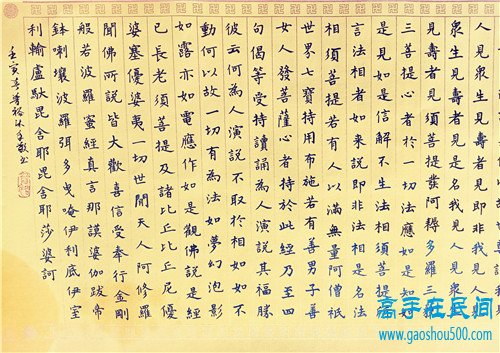 人見眾生見壽者見即非我見人見
眾生見壽者見是名我見人見眾生
見壽者見須菩提發阿耨多羅三藐
三菩提心者於一切法應如是知如
是見如是信解不生法相須菩提所
言法相者如來說即非法相是名法
相須菩提若有人以滿無量阿僧祇
世界七寶持用布施若有善男子善
女人發菩薩心者持於此經乃至四
句偈等受持讀誦為人演說其福勝
彼云何為人演說不取於相如如不
動何以故一切有為法如夢幻泡影
如露亦如電應作如是觀佛說是經
已長老須菩提及諸比丘比丘尼優
婆塞優婆夷一切世間天人阿修羅
聞佛所說皆大歡喜信受奉行金剛
般若波羅蜜經真言那謨婆伽跋帝
鉢喇壤波羅弭多曳唵伊利底伊室
利輸盧馱毘舍耶毘舍耶莎婆訶
壬寅
高手在民间
www.gaoshou500.com